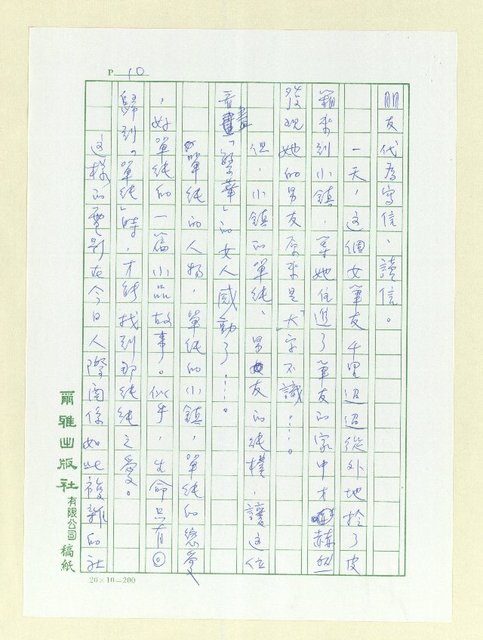 P. 10
朋友代為寫信、讀信。
一天,這個女筆友千里迢迢從外地於了皮
箱來到小鎮,等她住進了筆友的家中才赫然
發現她的男友原來是「大」字不識……。
但,小鎮的單純、男友的純樸,讓這位
看盡「繁華」的女人感動了……。
單純的人物,單純的小鎮,單純的戀愛
,好單純的一篇小品故事。似乎,生命只有回
歸到「單純」時,才能找到那純純之愛。
這樣的電影在今日人際關係如此複雜的社
爾雅出版社有限公司稿紙
20×10=200